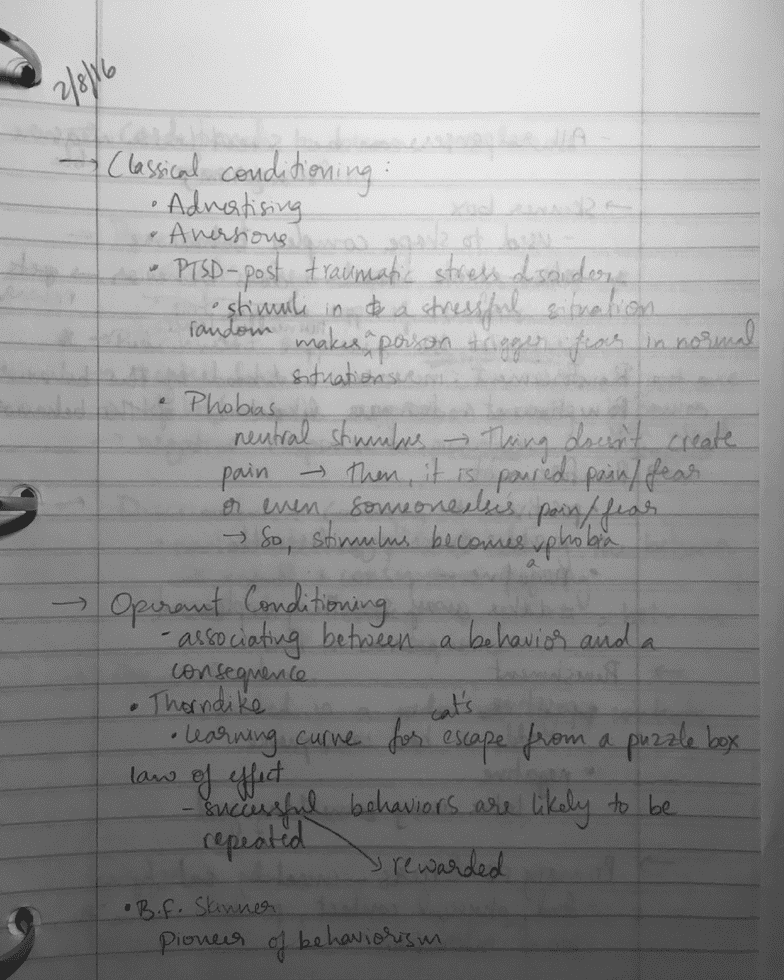 2/8/16
→ Classical conditioning:
• Advertising
• Aversions
• PTSD-post traumatic stress disorder
• stimuli in a stressful situation
random makes person trigger fear in normal
situations
• Phobias
neutral stimulus → Thing doesn't create
pain → then, it is paired pain/fear
or even someone else's pain/fear
→ So, stimulus becomes a phobia
→ Operant Conditioning
- associating between a behavior and a
consequence
• Thorndike
• learning curve for cat's escape from a puzzle box
law of effect
- successful behaviors are likely to be
repeated
→ rewarded
• B.F. Skinner
Pioneer of behaviorism